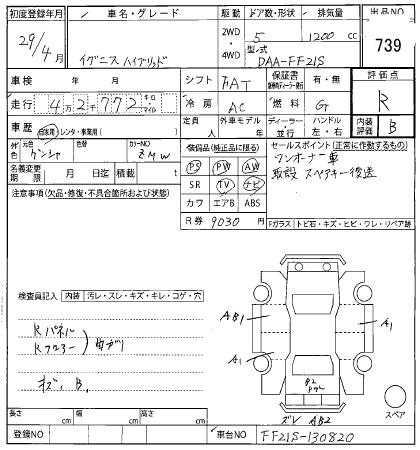 初度登録年月 車名・グレード 駆動 ドア数・形状 排気量 出品NO
29/4月 イグニス ハイブリッド 2WD 4WD 5 1200 cc 739
型式 DAA-FF21S
車検 年 月 シフト FAT 保証書 評価点
走行 4万2千772 キロ マイル 冷房 AC 燃料 G R
車歴 自家用・レンタ・事業用( ) 定員 人 外車モデル 年 ディーラー 並行 ハンドル 左・右 内装評価 B
元色 ゲンシヤ 色替 カラーNO ZMW 装備品(純正に限る) セールスポイント(正常に作動するもの)
名義変更期限 月 日迄 積載 t PS PW AW ワンオーナー車
注意事項(欠品・修復・不具合箇所および状態) SR TV ナビ 取説 スペアキー後送
カワ エアB ABS
R券 9030 円 Fガラス トビ石・キズ・ヒビ・ワレ・リペア跡
検査員記入 内装 汚レ・スレ・キズ・キレ・コゲ・穴
AB1 A1
Rパネル
Rフロアー 曲ガリ
A1
B2
キズ、B、
スペア
ズレ AB2
長さ cm 幅 cm 高さ cm
登録NO 車台NO FF21S-130820